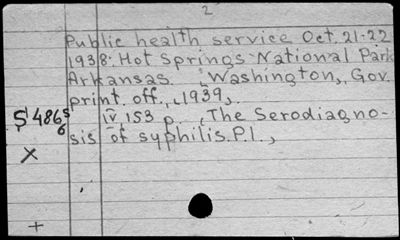 2
Public health service Oct. 21-22
1938. Hot Springs National Park
Arkansas. Washington, Gov.
print. off., 1939.
S 4865 iv, 153 p. (The Serodiagno-
6
X sis of syphilis. P.1.,
+